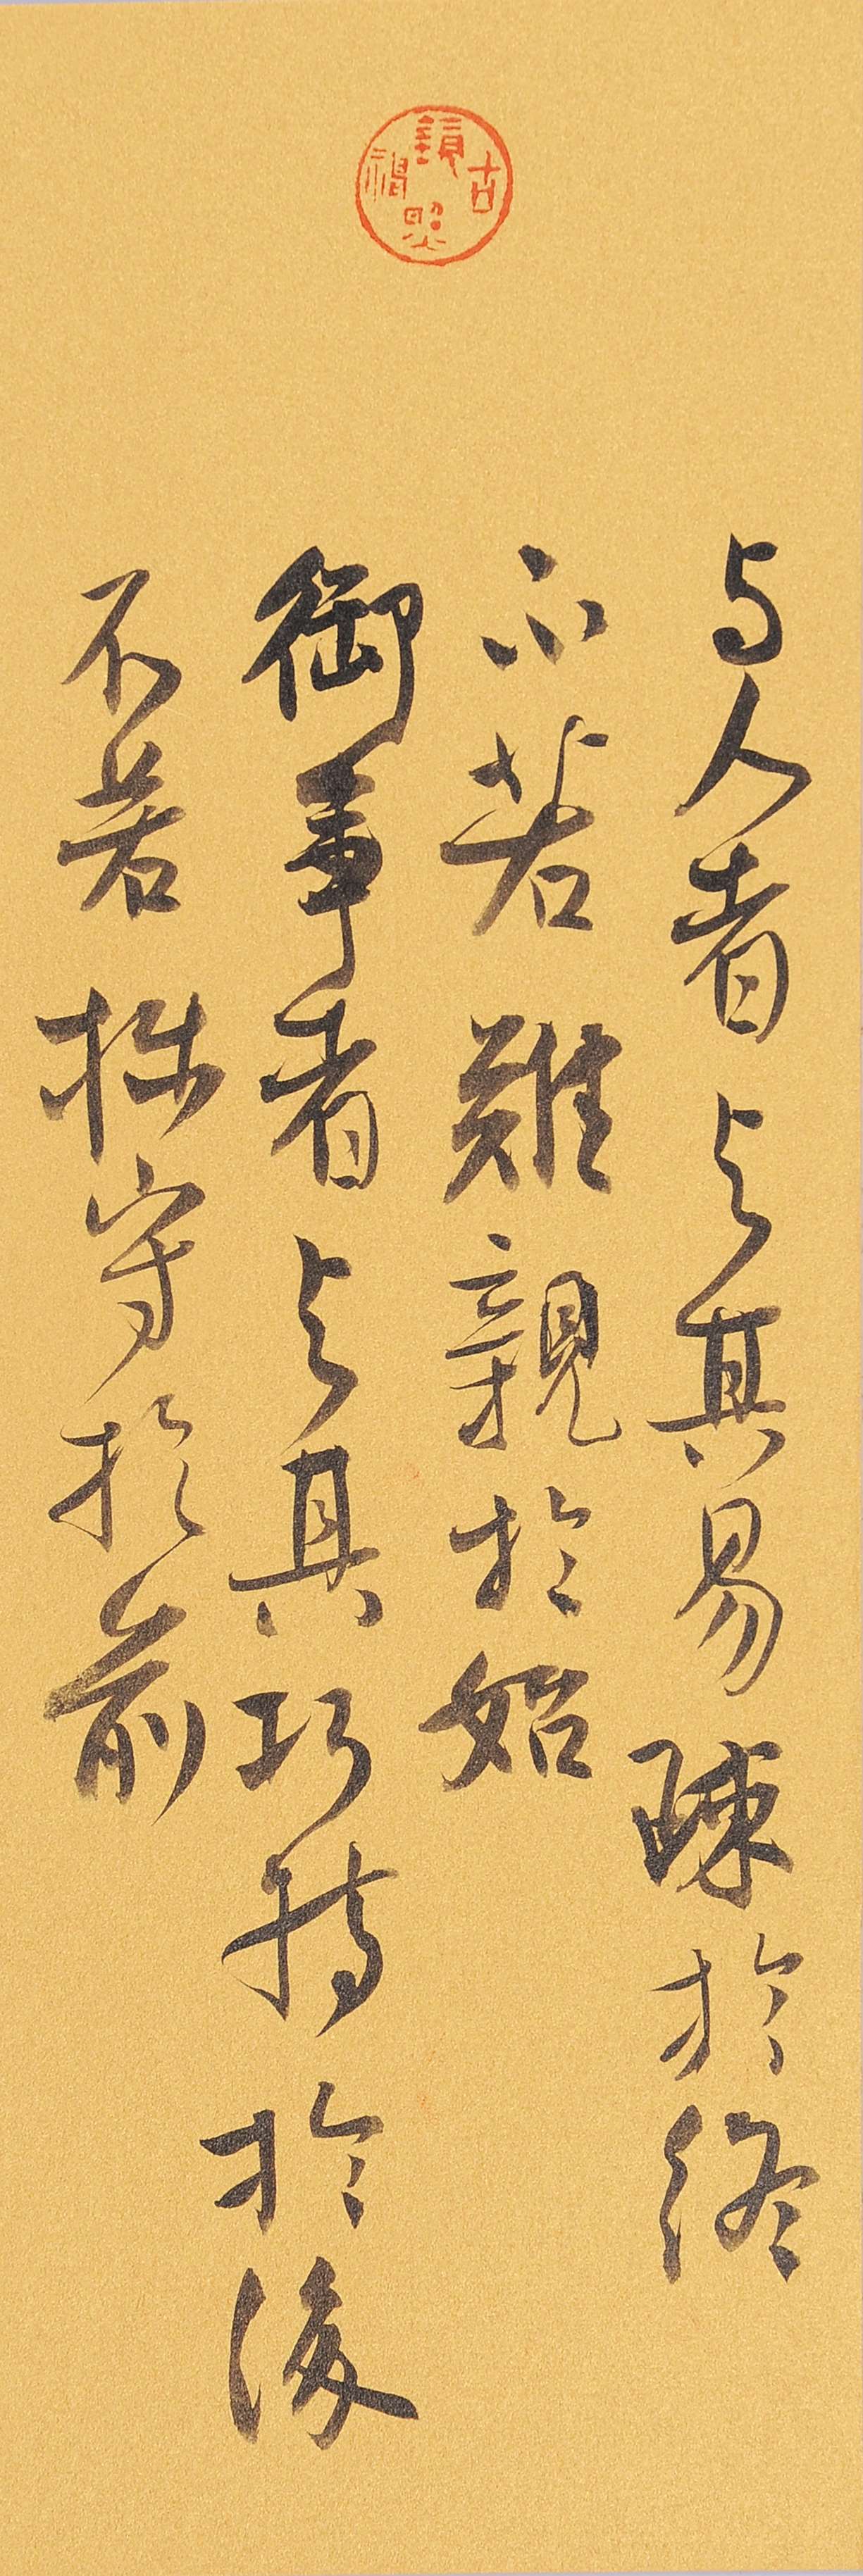 古鏡照神
与人者与其易疎於終
不若難親於始
御事者与其巧持於後
不若拙守於前